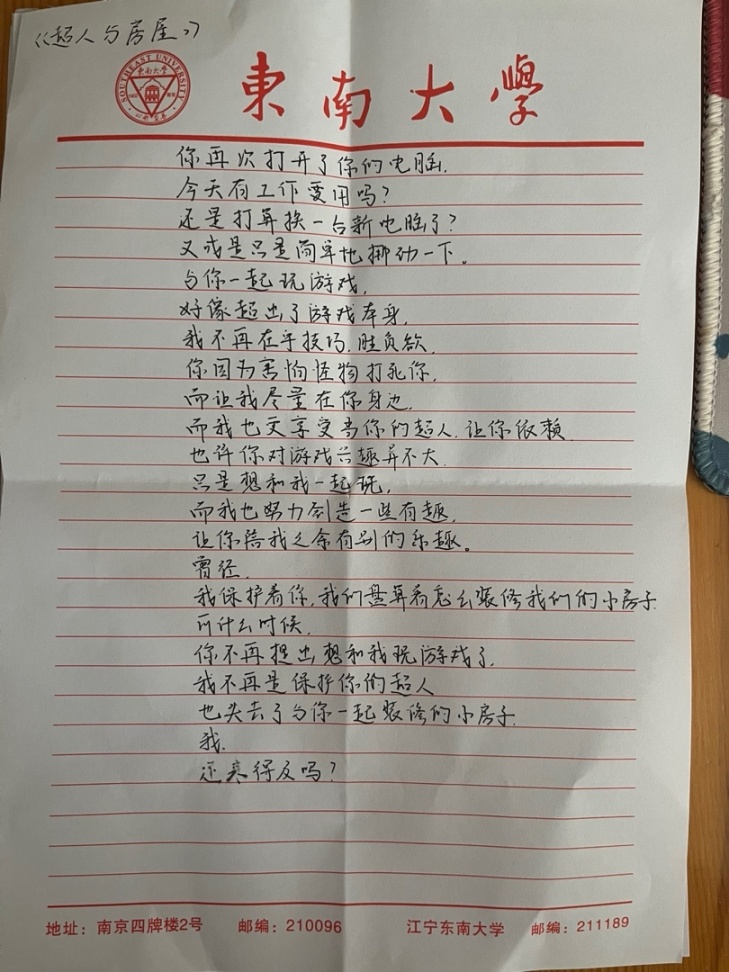 《超人与房屋》
SOUTHEAST UNIVERSITY
東南大學
東南大學
你再次打开了你的电脑.
今天有工作要用吗?
还是打算换一台新电脑了?
又或是只是简单地挪动一下。
与你一起玩游戏,
好像超出了游戏本身,
我不再在乎技巧.胜负欲.
你因为害怕怪物打死你,
而让我尽量在你身边.
而我也享受当你的超人.让你依赖.
也许你对游戏兴趣并不大.
只是想和我一起玩,
而我也努力创造一些有趣,
让你陪我之余有别的乐趣。
曾经.
我保护着你,我们盘算着怎么装修我们的小房子
可什么时候,
你不再提出想和我玩游戏了.
我不再是保护你的超人
也失去了与你一起装修的小房子.
我.
还来得及吗?
地址:南京四牌楼2号 邮编:210096 江宁东南大学 邮编:211189